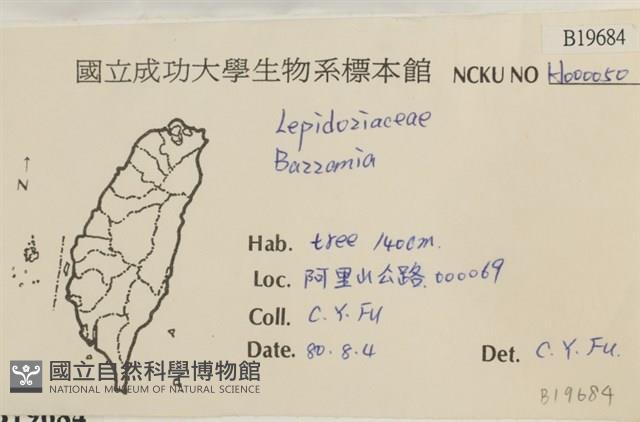 B19684
國立成功大學生物系標本館 NCKU NO H000050
Lepidoziaceae
Bazzania
N
Hab. tree 140cm.
Loc. 阿里山公路. 000069
Coll. C. Y. Fu
Date. 80. 8. 4 Det. C. Y. Fu.
國立自然科學博物館
NATIONAL MUSEUM OF NATURAL SCIENCE
B19684
B19684